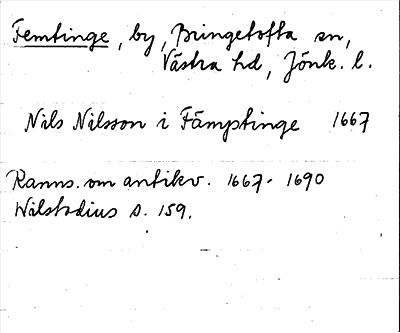 Femtinge, by, Bringetofta sn,
Västra hd, Jönk. l.
Nils Nilsson i Fämptinge 1667
Ranns. om antikv. 1667-1690
Wilstadius s. 159.